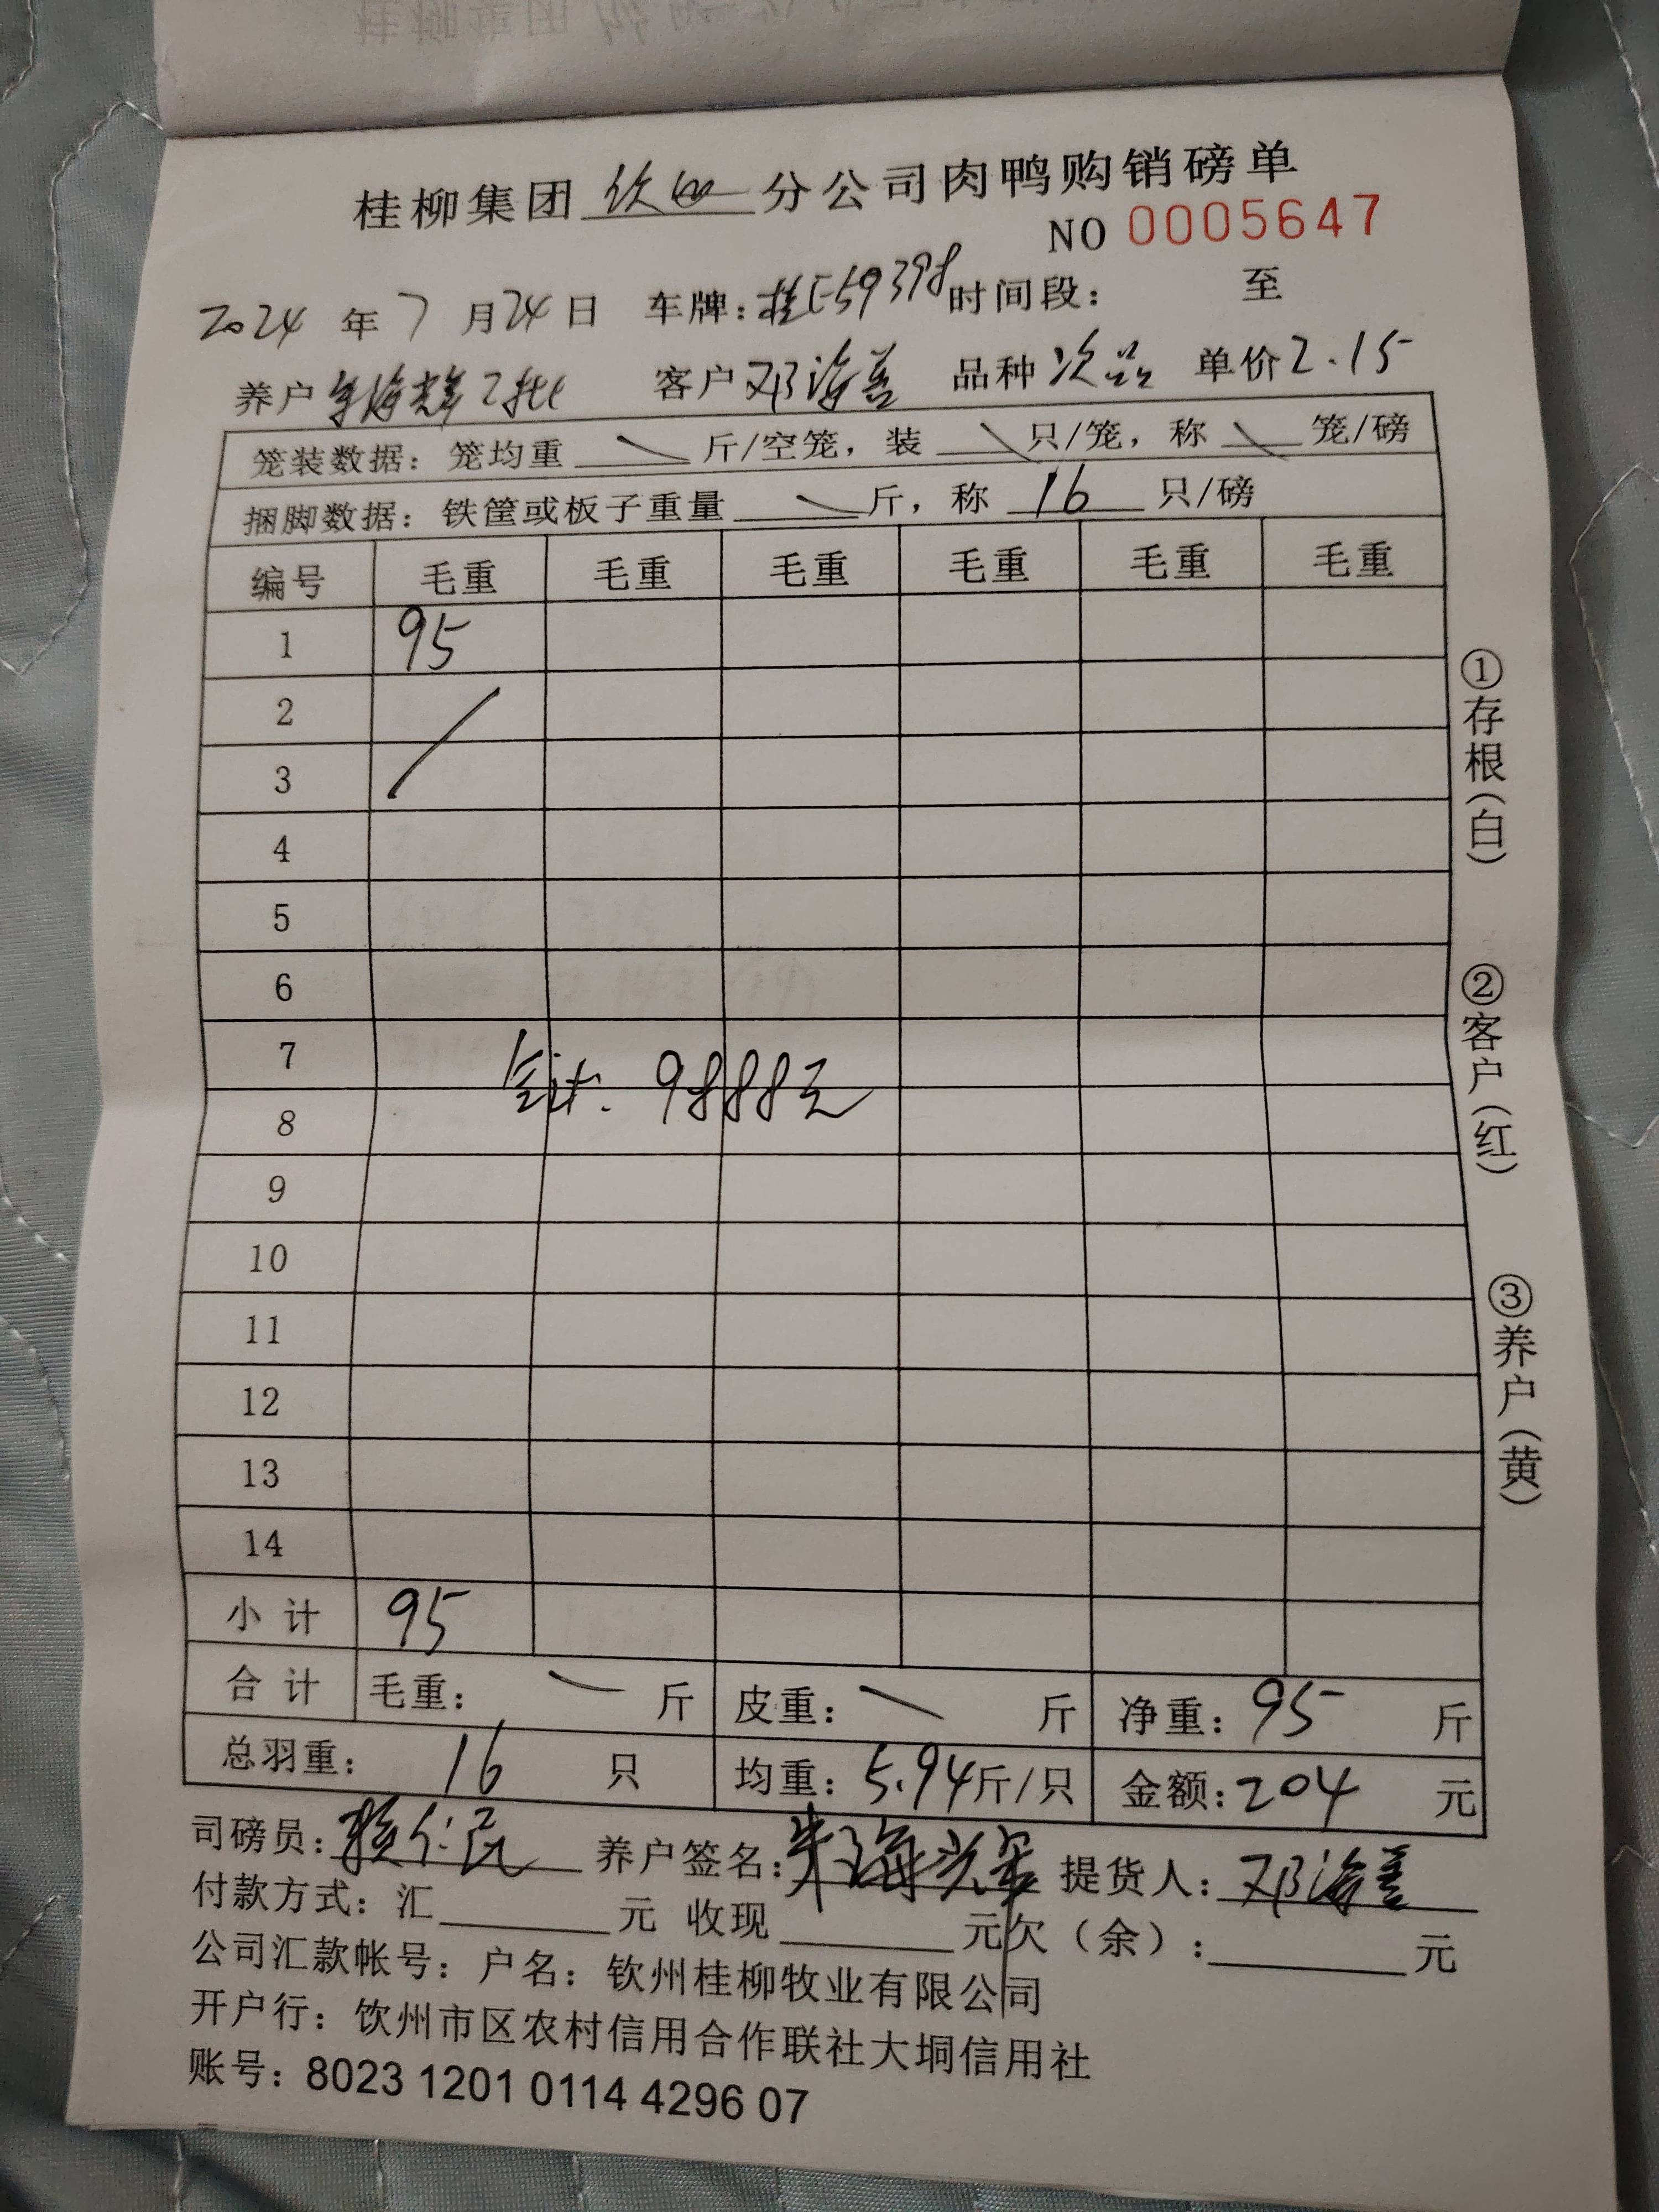 桂柳集团 钦州 分公司肉鸭购销磅单
NO 0005647
2024 年 7 月 24 日 车牌: 桂E59398 时间段: 至
养户 海辉2批 客户 邓海善 品种 次品 单价 2.15
笼装数据: 笼均重 斤/空笼, 装 只/笼, 称 笼/磅
捆脚数据: 铁筐或板子重量 斤, 称 16 只/磅
编号 毛重 毛重 毛重 毛重 毛重 毛重
1 95
2
3
4
5
6
7
合计. 9888元
8
9
10
11
12
13
14
小计 95
合计 毛重: 斤 皮重: 斤 净重: 95 斤
总羽重: 16 只 均重: 5.94 斤/只 金额: 204 元
司磅员: 仁民 养户签名: 朱海辉 提货人: 邓海善
付款方式: 汇 元 收现 元 欠(余): 元
公司汇款帐号: 户名: 钦州桂柳牧业有限公司
开户行: 钦州市区农村信用合作联社大垌信用社
账号: 8023 1201 0114 4296 07
①存根(白)
②客户(红)
③养户(黄)